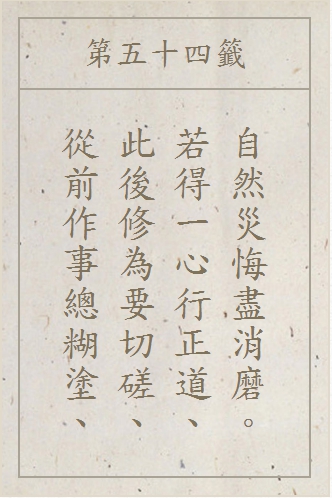 第五十四籤
從前作事總糊塗、
此後修為要切磋、
若得一心行正道、
自然災悔盡消磨。